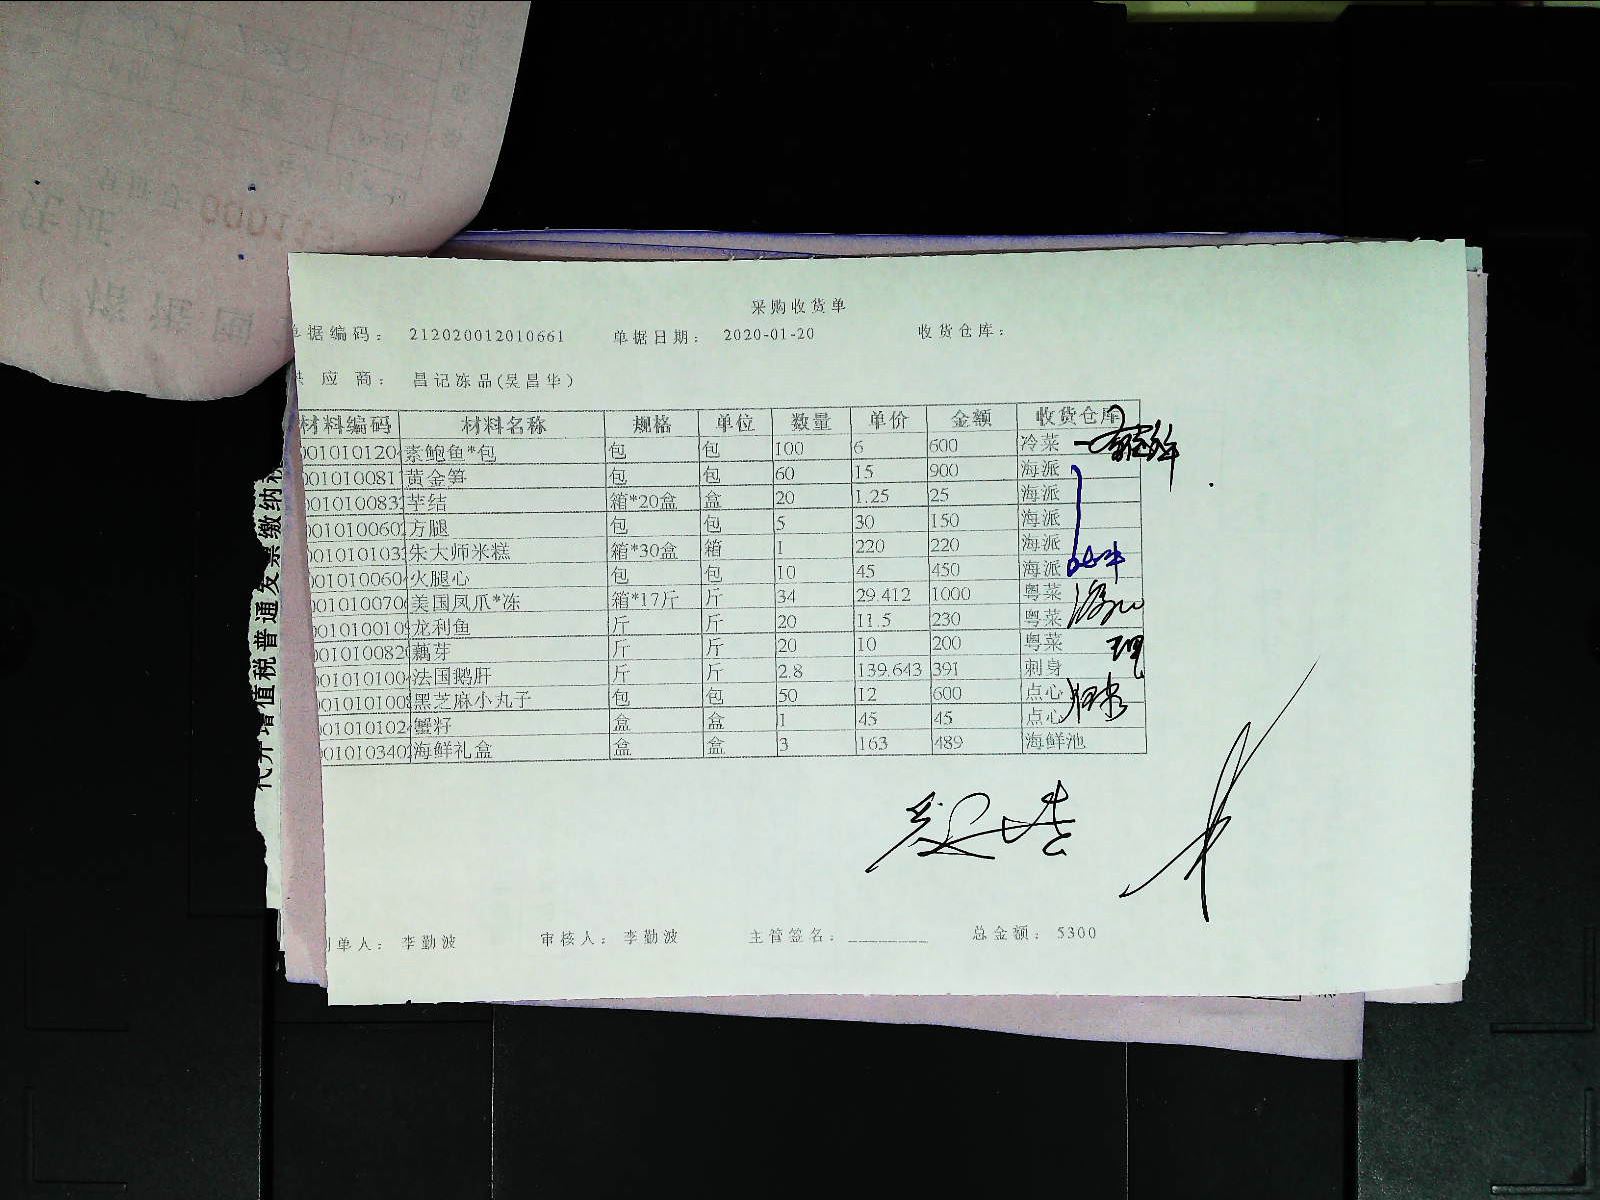 采购收货单
单据编码： 212020012010661 单据日期： 2020-01-20 收货仓库：
供 应 商： 昌记冻品(吴昌华)
材料编码 材料名称 规格 单位 数量 单价 金额 收货仓库
001010120 素鲍鱼*包 包 包 100 6 600 冷菜
00101008 黄金笋 包 包 60 15 900 海派
001010083 芋结 箱*20盒 盒 20 1.25 25 海派
00101060 方腿 包 包 5 30 150 海派
001010103 朱大师米糕 箱*30盒 箱 1 220 220 海派
001010060 火腿心 包 包 10 45 450 海派
001010070 美国凤爪*冻 箱*17斤 斤 34 29.412 1000 粤菜
001010010 龙利鱼 斤 斤 20 11.5 230 粤菜
001010082 藕芽 斤 斤 20 10 200 粤菜
001010100 法国鹅肝 斤 斤 2.8 139.643 391 刺身
00101010 黑芝麻小丸子 包 包 50 12 600 点心
00101010 蟹籽 盒 盒 1 45 45 点心
001010340 海鲜礼盒 盒 盒 3 163 489 海鲜池
制单人： 李勤波 审核人： 李勤波 主管签名：________ 总金额： 5300
代开增值税普通发票缴纳税